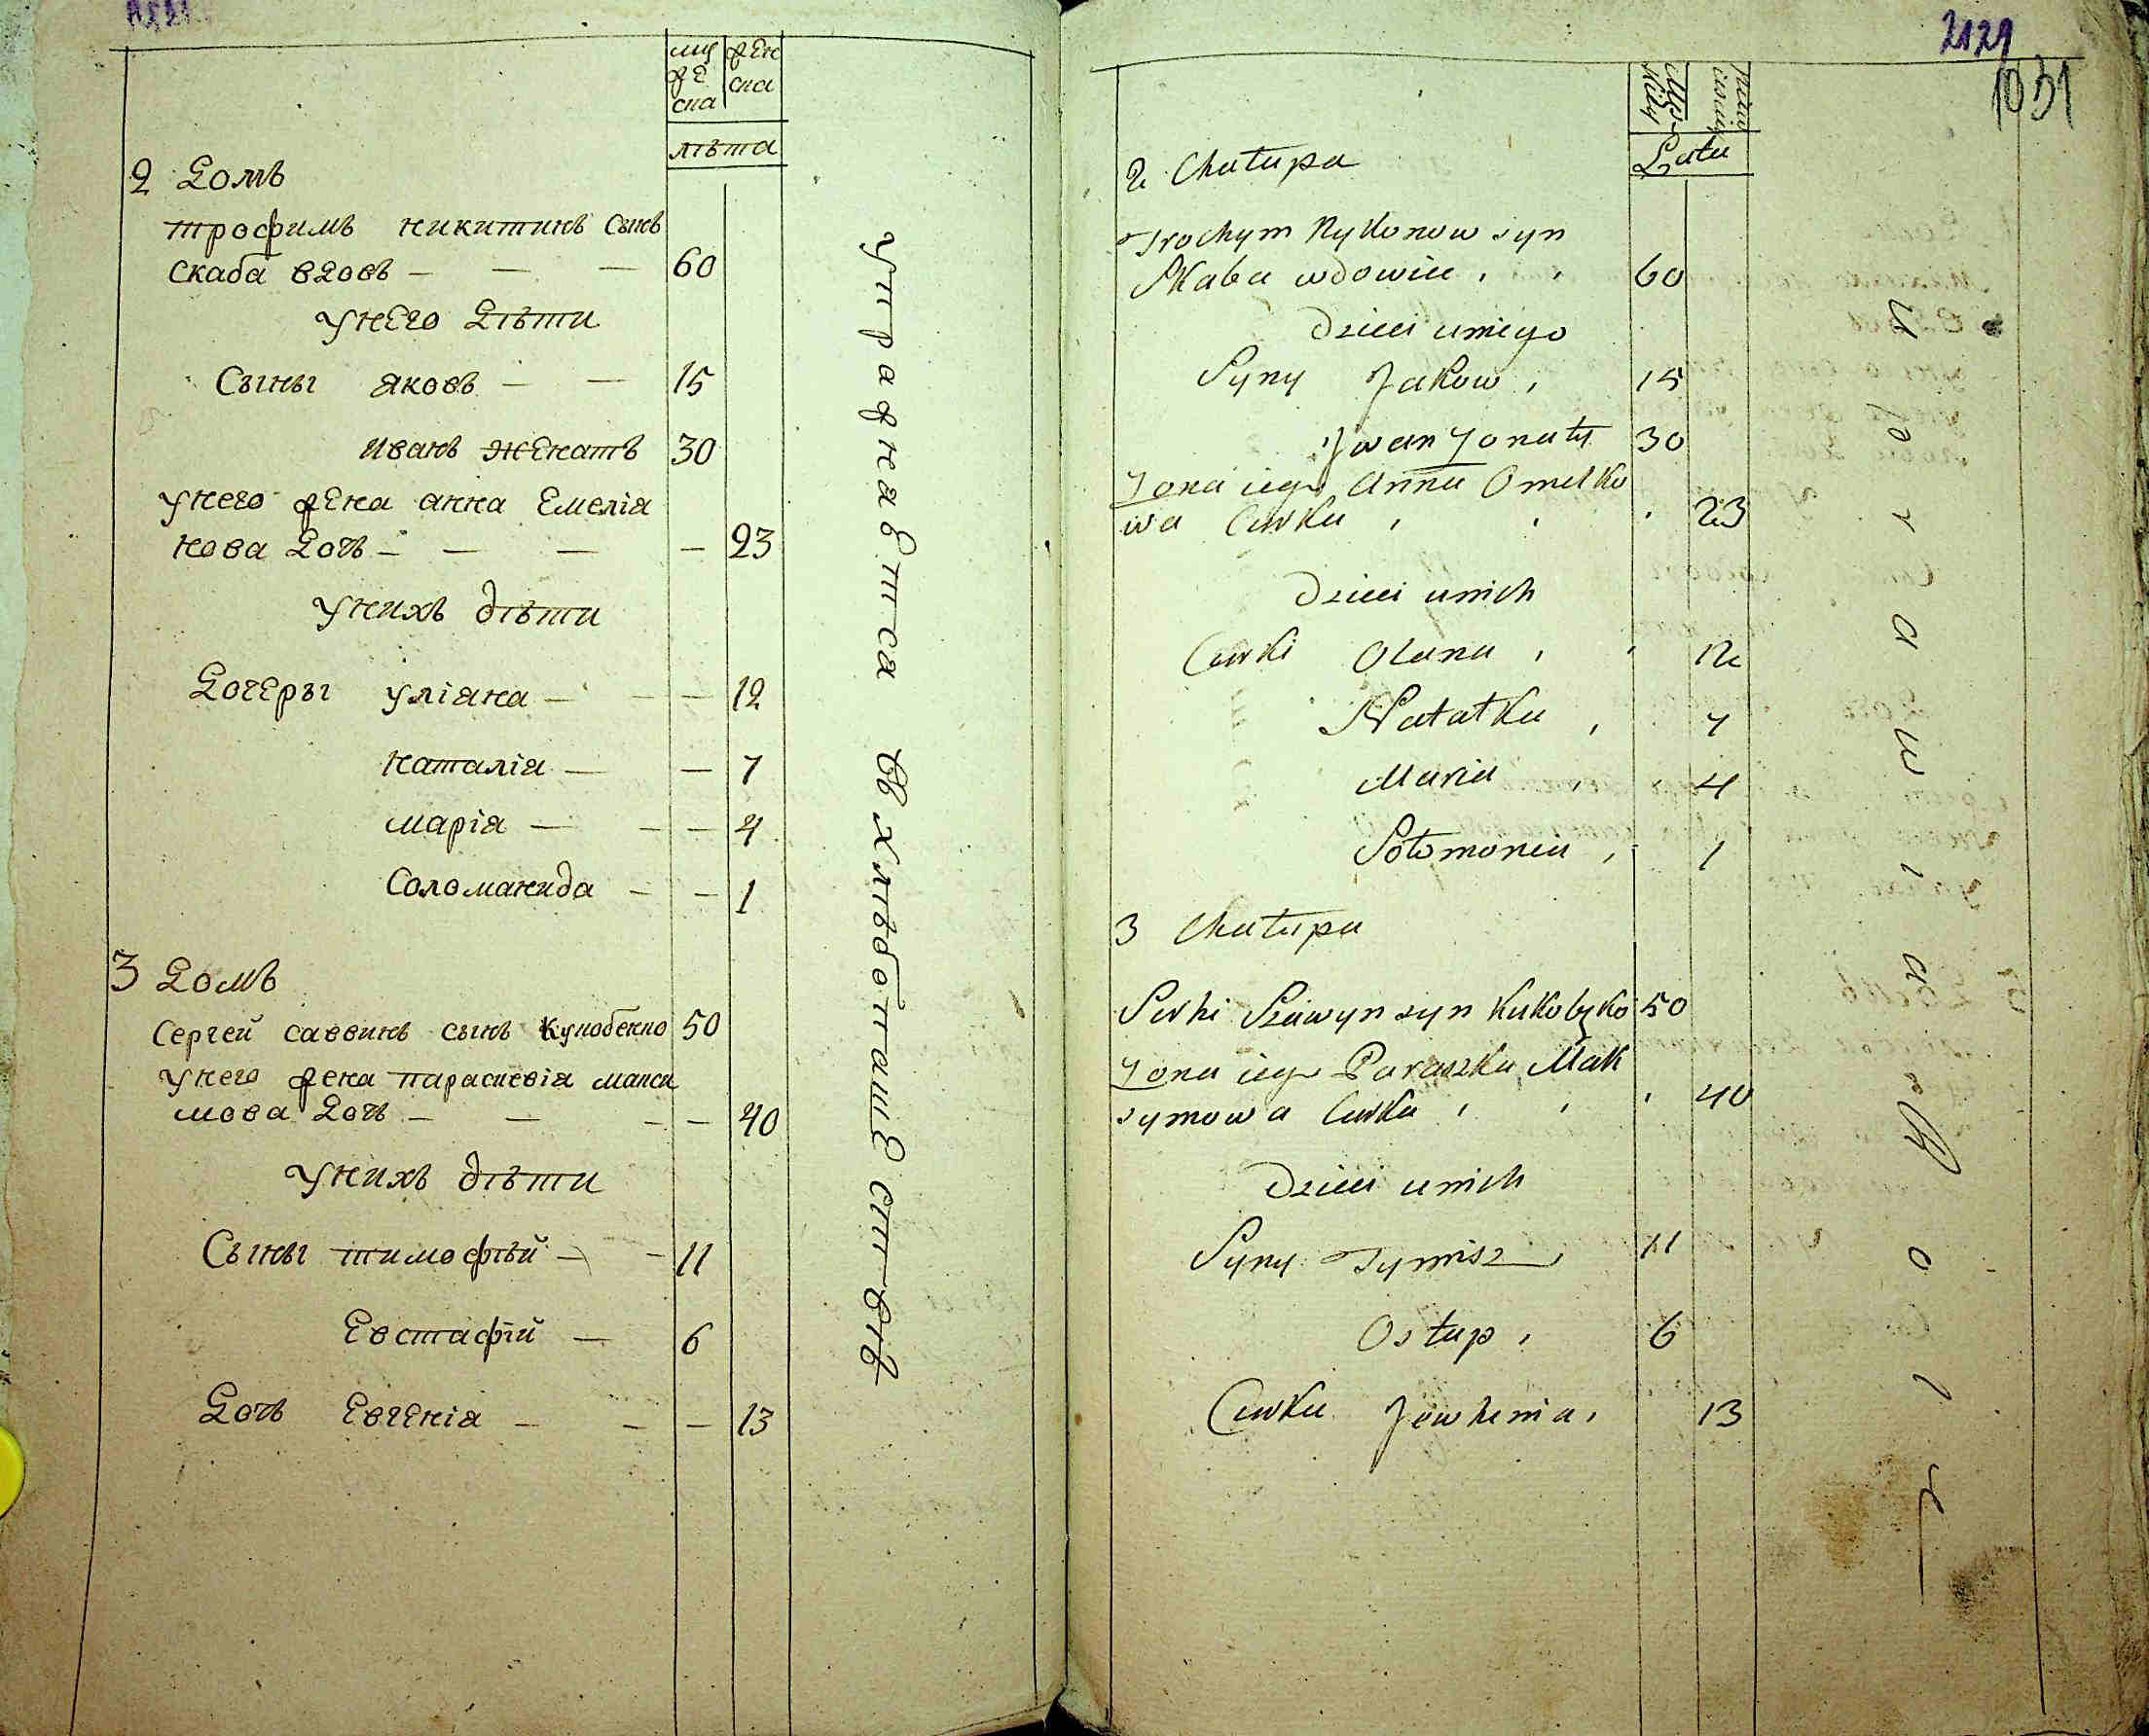 муже
ска
жен
ска
лѣта
2 Домъ
трофимъ никитинъ сынъ
скаба вдовъ — — — 60
унего дѣти
Сыны яковъ — — 15
иванъ женатъ 30
унего жена анна Емелія
нова дочь — — — — 23
унихъ дѣти
Дочеры уліяна — — — 12
наталія — — 7
марія — — — 4
Соломанида — — 1
3 Домъ
Сергей саввинъ сынъ 50
унего жена параскевія макси
мова дочь — — — — 40
унихъ дѣти
Сыны тимофѣй — — 11
Евстафій — 6
Дочь Евгенія — — — 13
упражнаетса въ хлѣбопашествѣ
2129
1031
Lata
2 Chałupa
Trochym Nykonow syn
Skaba wdowiec 60
Dzieci uniego
Syny Jakow 15
Jwan zonaty 30
Zona iego Anna Omelko
wa Curka 23
Dzieci unich
Curki Olana 12
Natałka 7
Maria 4
Sołomonia 1
3 Chałupa
Serhi Szawyn syn 50
Zona iego Paraszka Mak
symowa Curka 40
Dzieci unich
Syny Tymisz 11
Ostap 6
Curka Jewhenia 13